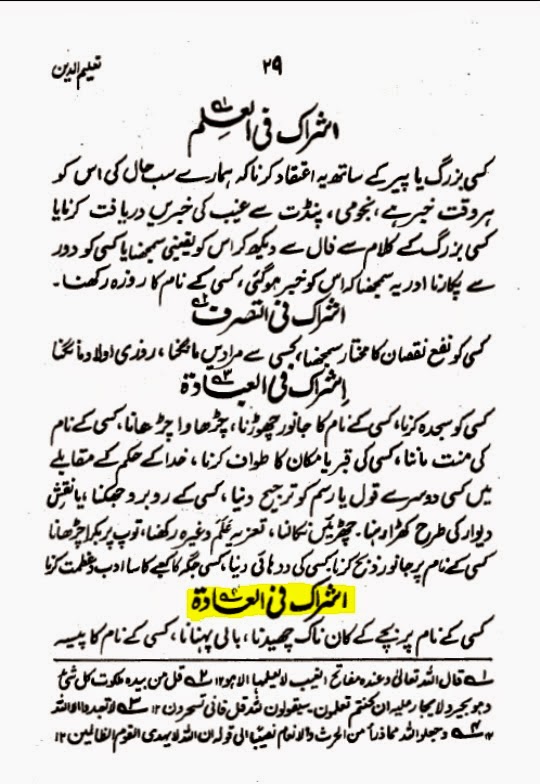 تعلیم الدین ۲۹
اشراک فی العلم
کسی بزرگ یا پیر کے ساتھ یہ اعتقاد کرنا کہ ہمارے سب حال کی اس کو
ہر وقت خبر ہے، نجومی، پنڈت سے غیب کی خبریں دریافت کرنا یا
کسی بزرگ کے کلام سے فال دیکھ کر اس کو یقینی سمجھنا یا کسی کو دور
سے پکارنا اور یہ سمجھنا کہ اس کو خبر ہوگئی، کسی کے نام کا روزہ رکھنا۔
اشراک فی التصرف
کسی کو نفع نقصان کا مختار سمجھنا، کسی سے مرادیں مانگنا، روزی اولاد مانگنا
اشراک فی العبادة
کسی کو سجدہ کرنا، کسی کے نام کا جانور چھوڑنا، چڑھاوا چڑھانا، کسی کے نام
کی منت ماننا، کسی کی قبر یا مکان کا طواف کرنا، خدا کے حکم کے مقابلے
میں کسی دوسرے قول یا رسم کو ترجیح دینا، کسی کے روبرو جھکنا، یا نقش
دیوار کی طرح کھڑا رہنا۔ چھڑیں نکالنا، تعزیہ علم وغیرہ رکھنا، توپ پر بکرا چڑھانا
کسی کے نام پر جانور ذبح کرنا، کسی کی دہائی دینا، کسی جگہ کا کعبے کا سا ادب و عظمت کرنا
اشراک فی العادة
کسی کے نام پر بچے کے کان ناک چھیدنا، بالی پہنانا، کسی کے نام کا پیسہ
۱ قال اللہ تعالیٰ وعندہ مفاتح الغیب لا یعلمہا الا ہو ۱۲ ۲ قل من بیدہ ملکوت کل شیٔ
وہو یجیر ولا یجار علیہ ان کنتم تعلمون۔ سیقولون للہ قل فانی تسحرون ۱۲ ۳ لا تعبدوا الا اللہ
۱۲ ۴ وجعلوا للہ مما ذرأ من الحرث والانعام نصیبا الی قولہ ان اللہ لا یہدی القوم الظالمین ۱۲